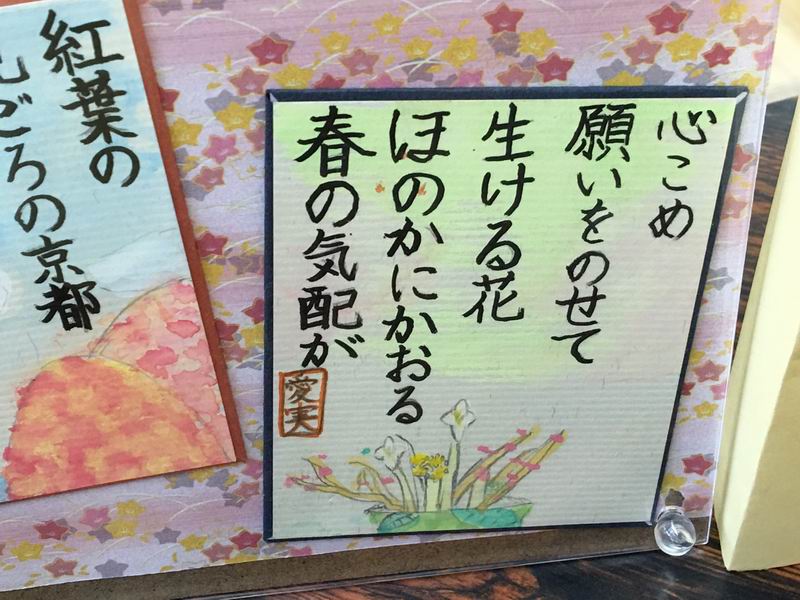 心こめ
願いをのせて
生ける花
ほのかにかおる
春の気配が
愛実
紅葉の
ごろの京都